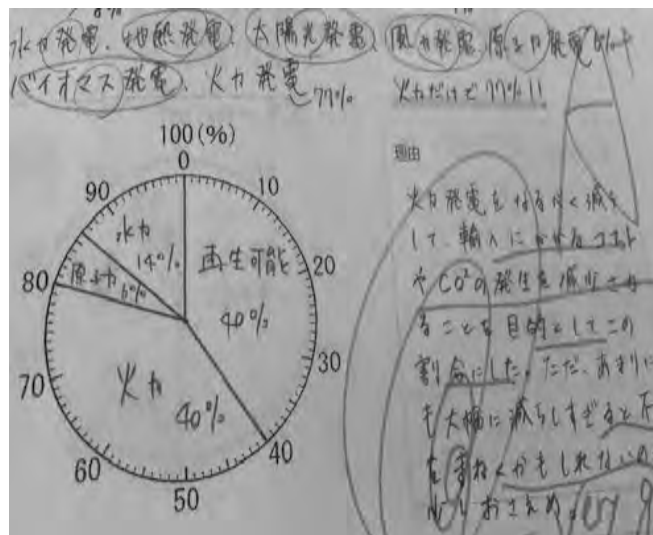 8%
水力発電、地熱発電、太陽光発電、風力発電、原子力発電
バイオマス発電、火力発電 77%
火力だけで77%!!
100(%)
0
10
20
30
40
50
60
70
80
90
再生可能
40%
火力
40%
原子力
6%
水力
14%
理由
火力発電をなるべく減ら
して、輸入にかかるコスト
やCO²の発生を減少させ
ることを目的としてこの
割合にした。ただ、あまりに
も大幅に減らしすぎると不
をまねくかもしれないの
おさえめ